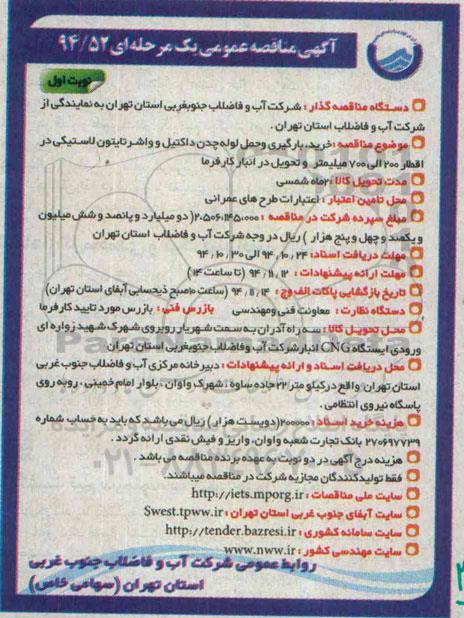 آگهی مناقصه عمومی یک مرحله ای ۹۴/۵۲
نوبت اول
دستگاه مناقصه گذار : شرکت آب و فاضلاب جنوبغربی استان تهران به نمایندگی از
شرکت آب و فاضلاب استان تهران .
موضوع مناقصه :خرید،بارگیری وحمل لوله چدن داکتیل و واشر تایتون لاستیکی در
اقطار ۲۰۰ الی ۷۰۰ میلیمتر و تحویل در انبار کارفرما
مدت تحویل کالا :۲ماه شمسی
محل تامین اعتبار : اعتبارات طرح های عمرانی
مبلغ سپرده شرکت در مناقصه : ۲،۵۰۶،۱۴۵،۰۰۰( دو میلیارد و پانصد و شش میلیون
و یکصد و چهل و پنج هزار ) ریال در وجه شرکت آب و فاضلاب استان تهران
مهلت دریافت اسناد: ۹۴،۱۰،۲۴ الی ۹۴،۱۰،۳۰
مهلت ارائه پیشنهادات : ۹۴،۱۱،۱۲ (تا ساعت ۱۴)
تاریخ بازگشایی پاکات الف وج : ۹۴،۱۱،۱۴ (ساعت ۱۰صبح ذیحسابی آبفای استان تهران)
دستگاه نظارت : معاونت فنی ومهندسی بازرس فنی : بازرس مورد تایید کارفرما
محل تحویل کالا : سه راه آدران به سمت شهریار روبروی شهرک شهید زواره ای
ورودی ایستگاه CNG انبار شرکت آب وفاضلاب جنوبغربی استان تهران
محل دریافت اسناد و ارائه پیشنهادات : دبیرخانه مرکزی آب و فاضلاب جنوب غربی
استان تهران واقع در کیلومتر ۲۲ جاده ساوه ، شهرک واوان ، بلوار امام خمینی ، روبه روی
پاسگاه نیروی انتظامی .
هزینه خرید اسناد :۲۰۰۰۰۰(دویست هزار) ریال می باشد که باید به حساب شماره
۲۷۰۶۹۷۷۳۹ بانک تجارت شعبه واوان، واریز و فیش نقدی ارائه گردد .
هزینه درج آگهی در دو نوبت به عهده برنده مناقصه می باشد .
فقط تولیدکنندگان مجازبه شرکت در مناقصه میباشند.
سایت ملی مناقصات : http://iets.mporg.ir
سایت آبفای جنوب غربی استان تهران : Swest.tpww.ir
سایت سامانه کشوری : http://tender.bazresi.ir
سایت مهندسی کشور : www.nww.ir
روابط عمومی شرکت آب و فاضلاب جنوب غربی
استان تهران (سهامی خاص)